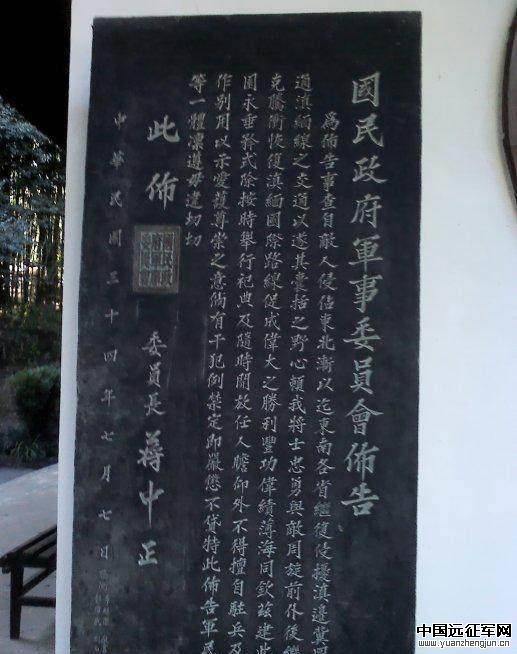 國民政府軍事委員會佈告
為佈告事查自敵人侵佔東北漸以迄東南各省繼復侵擾滇邊冀
通滇緬線之交通以遂其囊括之野心賴我將士忠勇與敵周旋前仆後繼
克騰衝恢復滇緬國際路線促成偉大之勝利豐功偉績薄海同欽茲建此
園永垂矜式除按時舉行祀典及隨時開放任人瞻仰外不得擅自駐兵及
作別用以示愛護尊崇之意倘有干犯例禁定即嚴懲不貸特此佈告軍民
等一體凜遵毋違切切
此佈
委員長 蔣中正
中華民國三十四年七月七日
中国远征军网
www.yuanzhengjun.cn